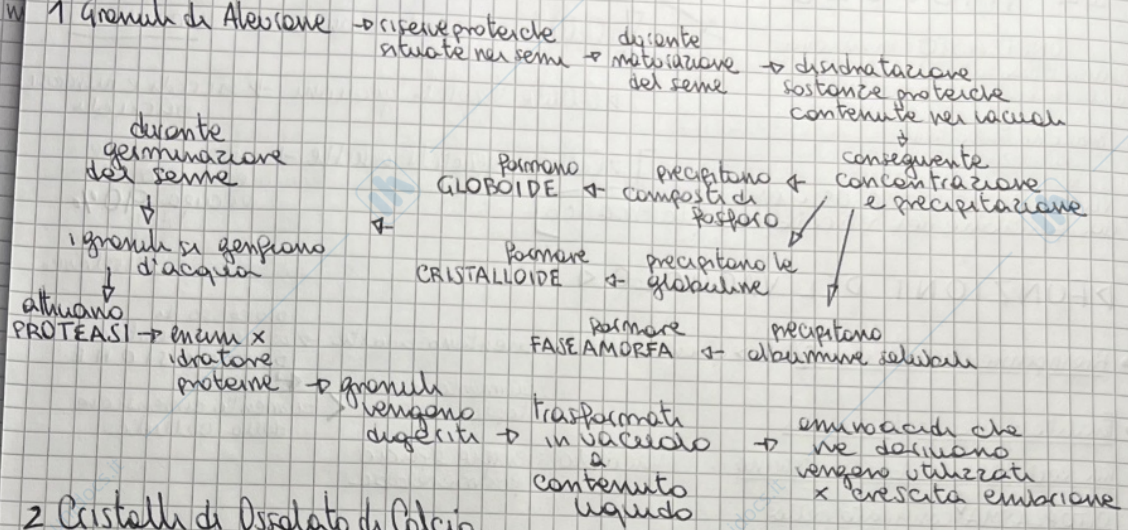 1 Granuli di Aleurone → riserve proteiche
situate nei semi → durante
maturazione
del seme → disidratazione
sostanze proteiche
contenute nei vacuoli
↓
conseguente
concentrazione
e precipitazione
precipitano
composti di
fosforo → formano
GLOBOIDE
precipitano le
globuline → formare
CRISTALLOIDE
precipitano
albumine solubili → formare
FASE AMORFA
durante
germinazione
del seme
↓
i granuli si gonfiano
d'acqua
↓
attivano
PROTEASI → enzimi x
idratare
proteine → granuli
vengono
digeriti → trasformati
in vacuolo
a
contenuto
liquido → aminoacidi che
ne derivano
vengono utilizzati
x crescita embrione
2 Cristalli di Ossalato di Calcio